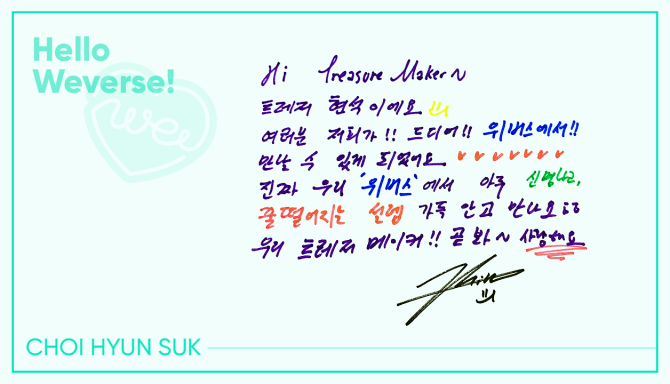 Hello
Weverse!
we
Hi Treasure Maker~
트레저 현석이에요
여러분 저희가!! 드디어!! 위버스에서!!
만날 수 있게 되었어요
진짜 우리 '위버스'에서 아주 신명나고,
꿀떨어지는 설렘 가득 안고 만나요ㅎㅎ
우리 트레저 메이커!! 곧 봐~ 사랑해요
CHOI HYUN SUK